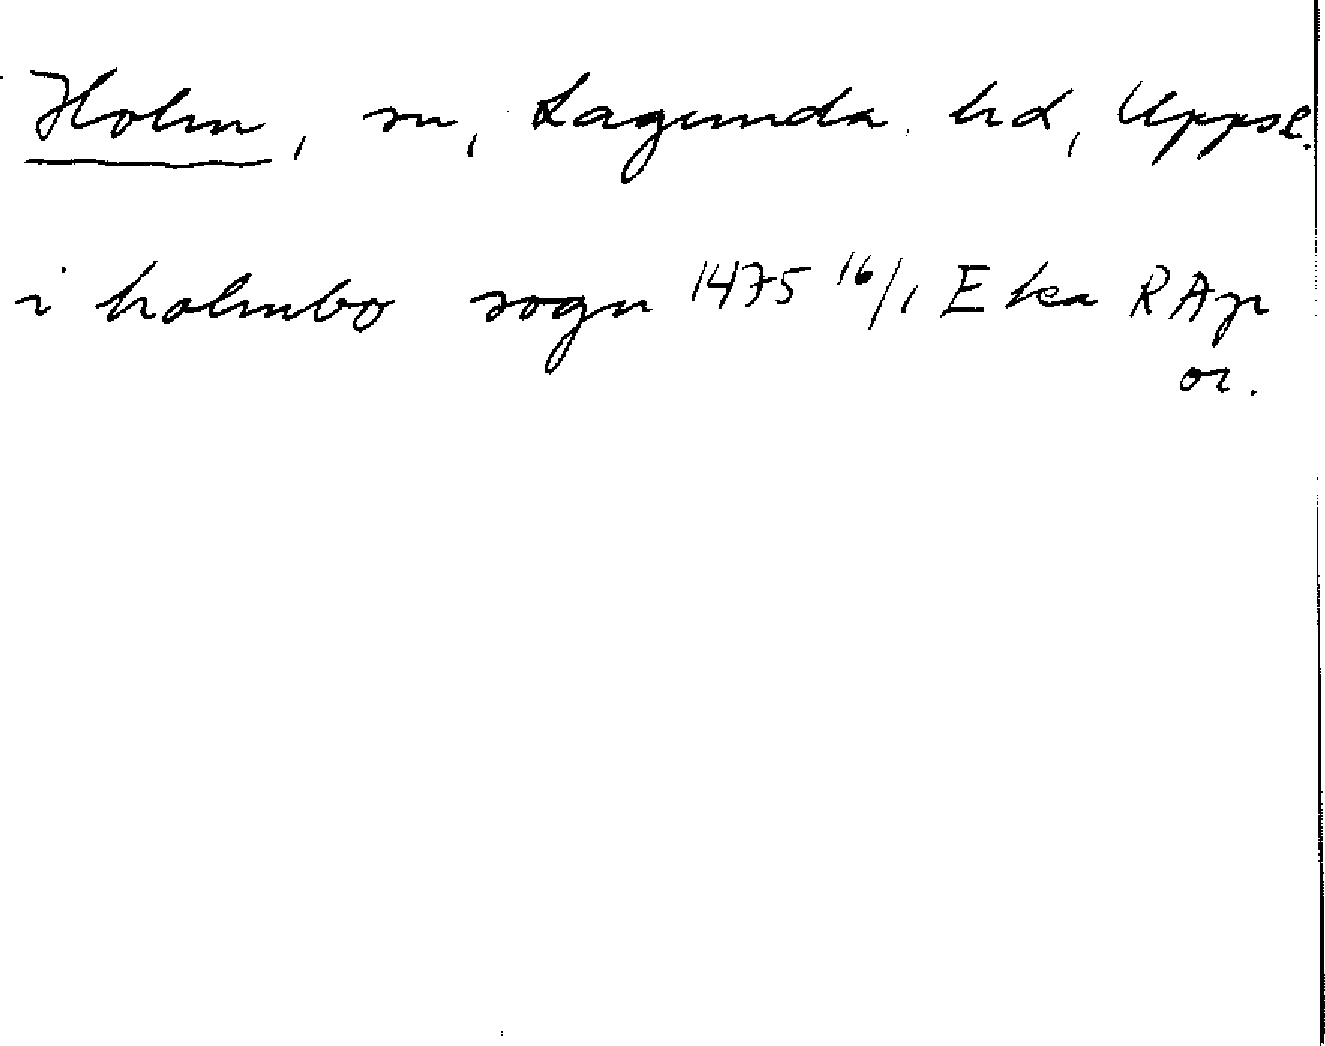 Holm, sn, Lagunda hd, Uppsl.
i holmbo sogn 1475 16/1 Eka RAp
or.